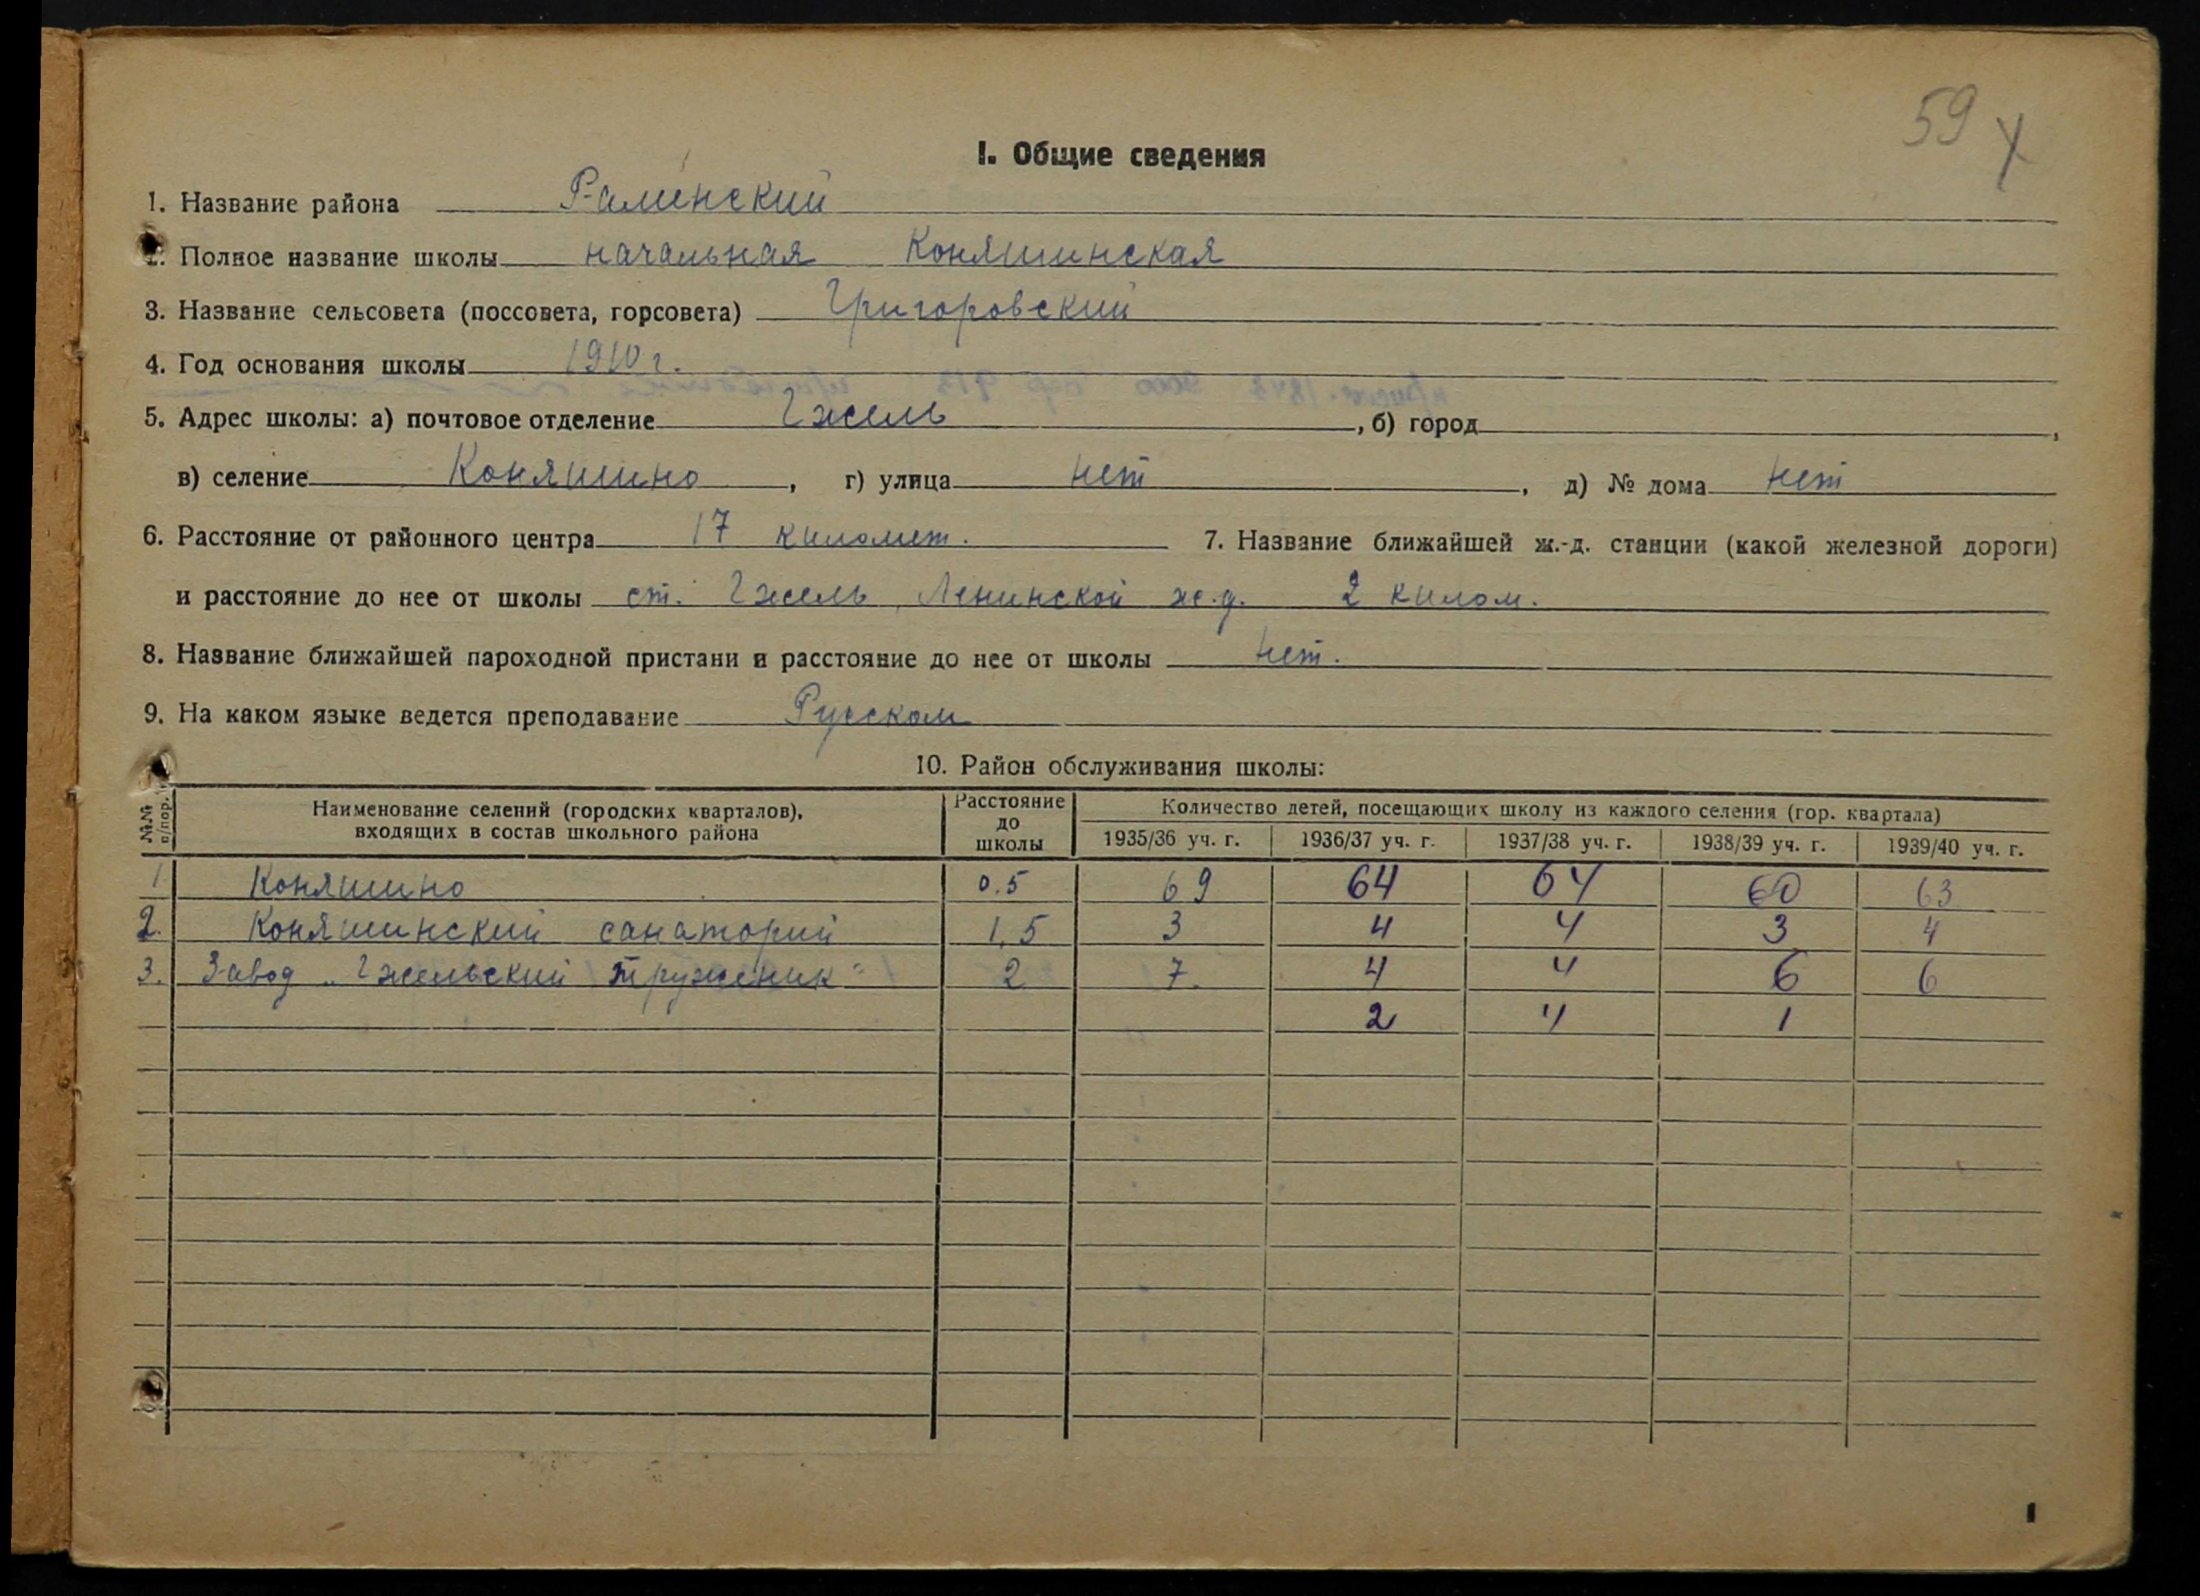 59
I. Общие сведения
1. Название района Раменский
2. Полное название школы начальная Коняшинская
3. Название сельсовета (поссовета, горсовета) Григоровский
4. Год основания школы 1910 г.
5. Адрес школы: а) почтовое отделение Гжель, б) город ,
в) селение Коняшино, г) улица нет, д) № дома нет
6. Расстояние от районного центра 17 километ. 7. Название ближайшей ж.-д. станции (какой железной дороги)
и расстояние до нее от школы ст. Гжель, Ленинской ж.д. 2 килом.
8. Название ближайшей пароходной пристани и расстояние до нее от школы нет.
9. На каком языке ведется преподавание Русском
10. Район обслуживания школы:
№№ п/пор. Наименование селений (городских кварталов), входящих в состав школьного района Расстояние до школы Количество детей, посещающих школу из каждого селения (гор. квартала)
1935/36 уч. г. 1936/37 уч. г. 1937/38 уч. г. 1938/39 уч. г. 1939/40 уч. г.
1 Коняшино 0.5 69 64 64 60 63
2. Коняшинский санаторий 1,5 3 4 4 3 4
3. Завод „Гжельский труженик" 2 7. 4 4 6 6
2 4 1
1